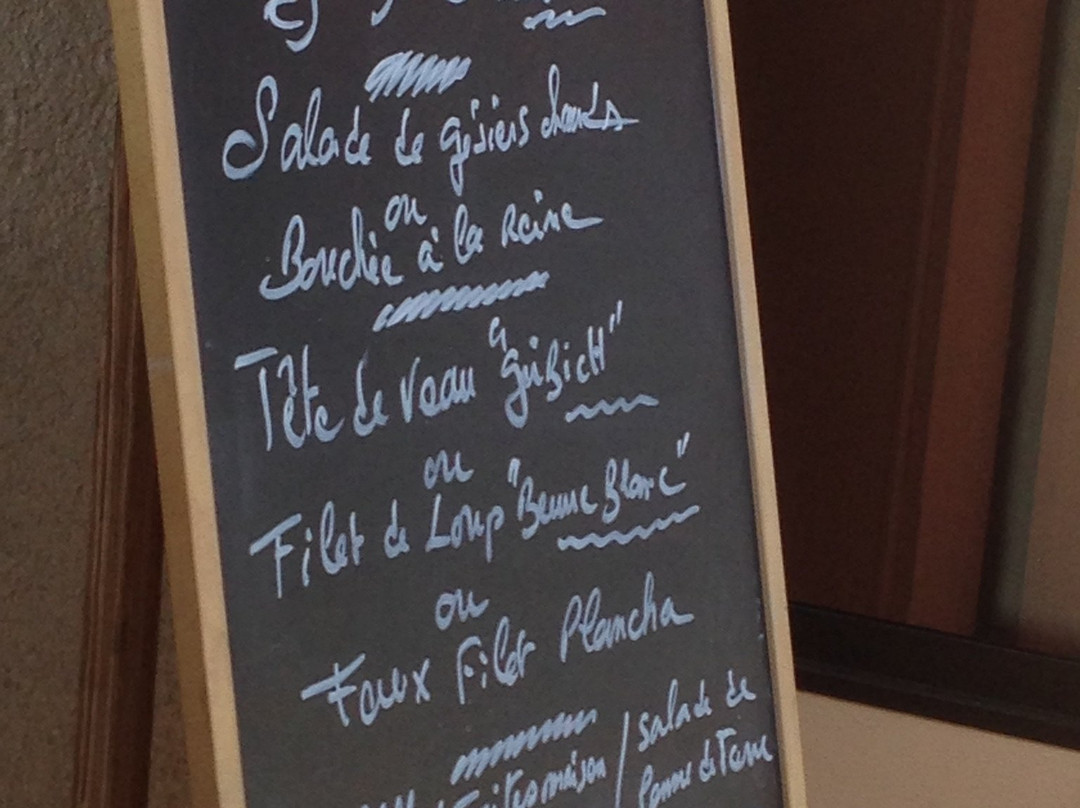 Salade de gésiers chauds
ou
Bouchée à la Reine
Tête de veau "Gribich"
ou
Filet de Loup "Beurre Blanc"
ou
Faux Filet Plancha
maison / salade de
Pomme de Terre